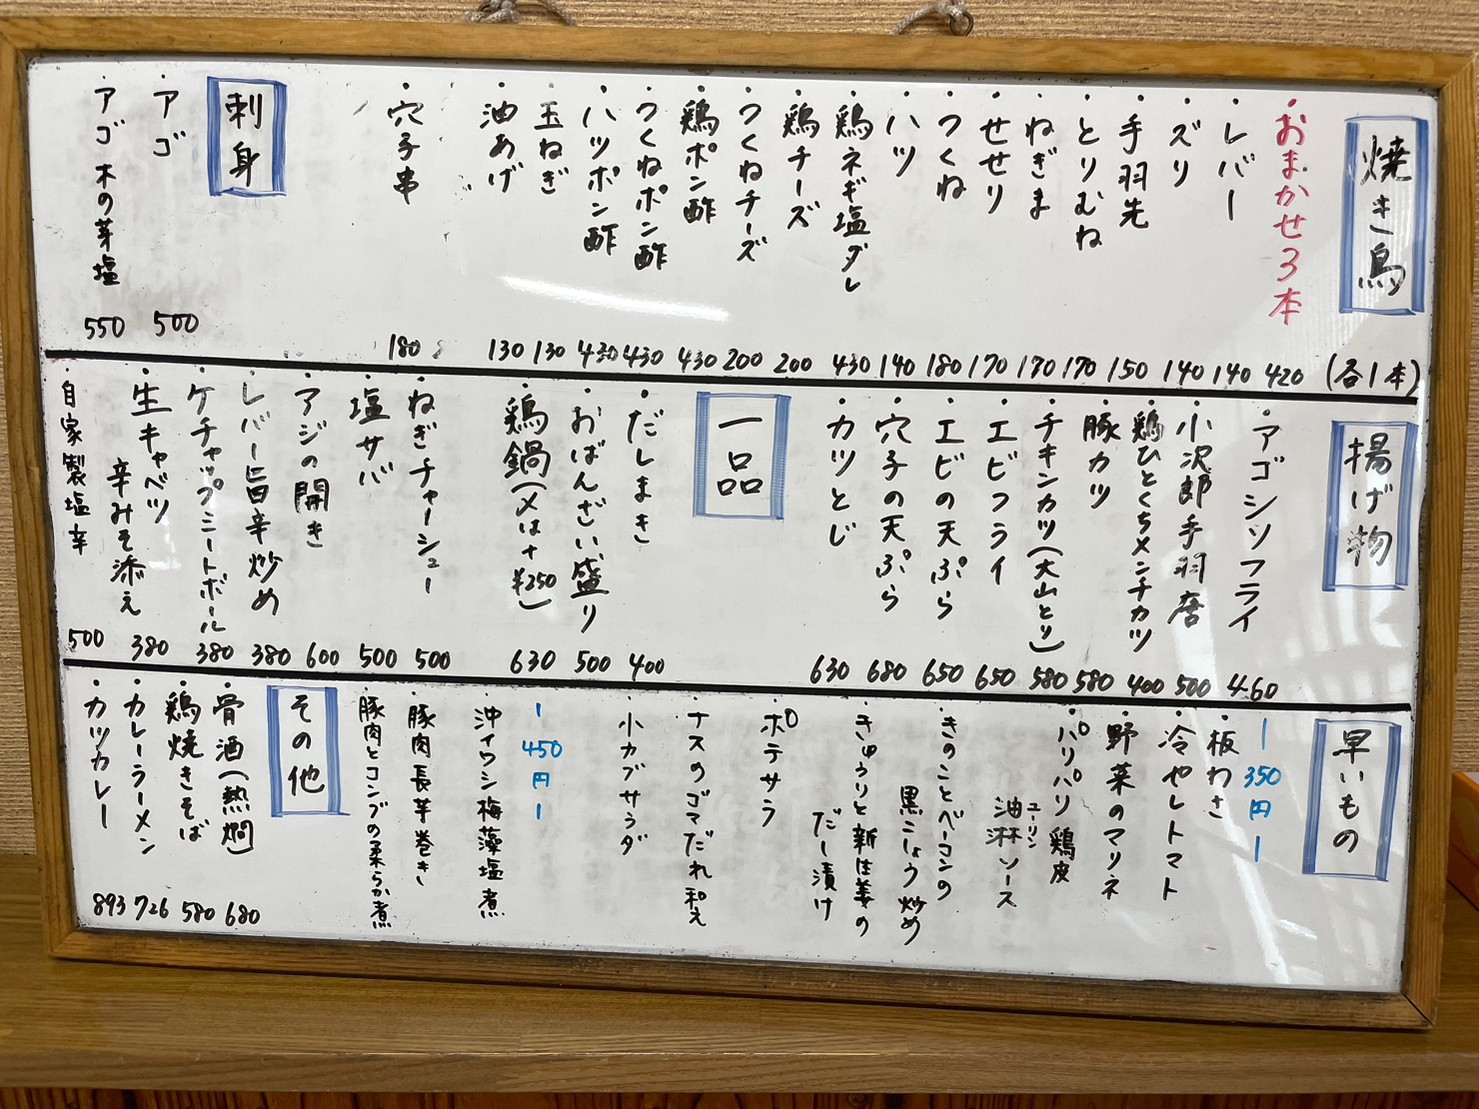 焼き鳥
(各1本)
・おまかせ3本 420
・レバー 140
・ズリ 140
・手羽先 150
・とりむね 170
・ねぎま 170
・せせり 170
・つくね 180
・ハツ 140
・鶏ネギ塩ダレ 430
・鶏チーズ 200
・つくねチーズ 200
・鶏ポン酢 430
・つくねポン酢 430
・ハツポン酢 430
・玉ねぎ 130
・油あげ 130
・穴子串 180
刺身
・アゴ 500
・アゴ 木の芽塩 550
揚げ物
・アゴシソフライ 460
・小次郎手羽唐 500
・鶏ひとくちメンチカツ 400
・豚カツ 580
・チキンカツ(大山とり) 580
・エビフライ 650
・エビの天ぷら 650
・穴子の天ぷら 680
・カツとじ 630
一品
・だしまき 400
・おばんざい盛り 500
・鶏鍋(〆は+¥250) 630
・ねぎチャーシュー 500
・塩サバ 500
・アジの開き 600
・レバー旨辛炒め 380
・ケチャップミートボール 380
・生キャベツ
辛みそ添え 380
・自家製塩辛 500
早いもの
ー350円ー
・板わさ
・冷やしトマト
・野菜のマリネ
・パリパリ鶏皮
ユーリン
油淋ソース
・きのことベーコンの
黒こしょう炒め
・きゅうりと新生姜の
だし漬け
・ポテサラ
・ナスのゴマだれ和え
・小カブサラダ
ー450円ー
・沖イワシ梅藻塩煮
・豚肉長芋巻き
・豚肉とコンブの柔らか煮
その他
・骨酒(熱燗) 680
・鶏焼きそば 580
・カレーラーメン 726
・カツカレー 893